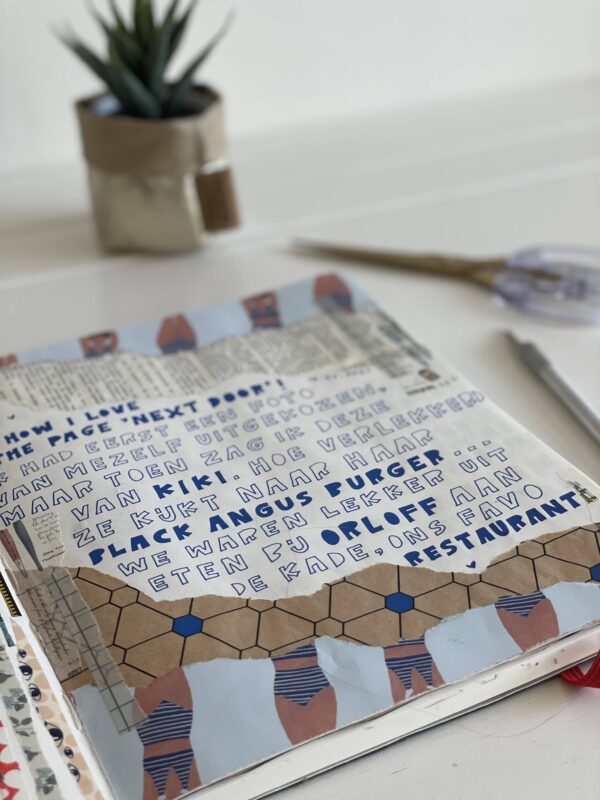 HOW I LOVE
THE PAGE 'NEXT DOOR'!
IK HAD EERST EEN FOTO
VAN MEZELF UITGEKOZEN,
MAAR TOEN ZAG IK DEZE
VAN KIKI. HOE VERLEKKERD
ZE KIJKT NAAR HAAR
BLACK ANGUS BURGER...
WE WAREN LEKKER UIT
ETEN BIJ ORLOFF AAN
DE KADE, ONS FAVO
RESTAURANT